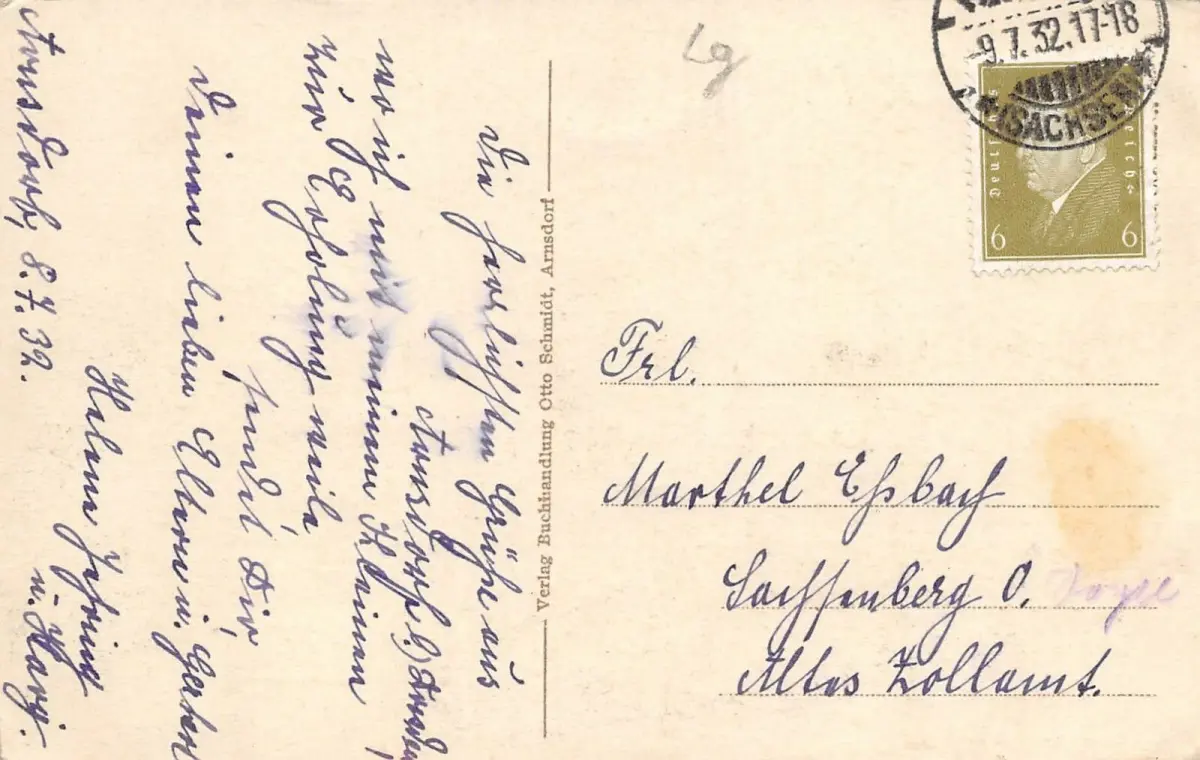 Arnsdorf, 8.7.32.
Die herzlichsten Grüße aus
Arnsdorf b) Dresden,
wo ich mit meinem Kleinen
zur Erholung weile,
sendet Dir,
Deinen lieben Eltern u.
Helene
u.
Verlag Buchhandlung Otto Schmidt, Arnsdorf
Lg
-9.7.32.17-18
(SACHSEN)
Deutsches Reich
6 6
Frl.
Marthel Eßbach
Sachsenberg O.
Altes Zollamt.